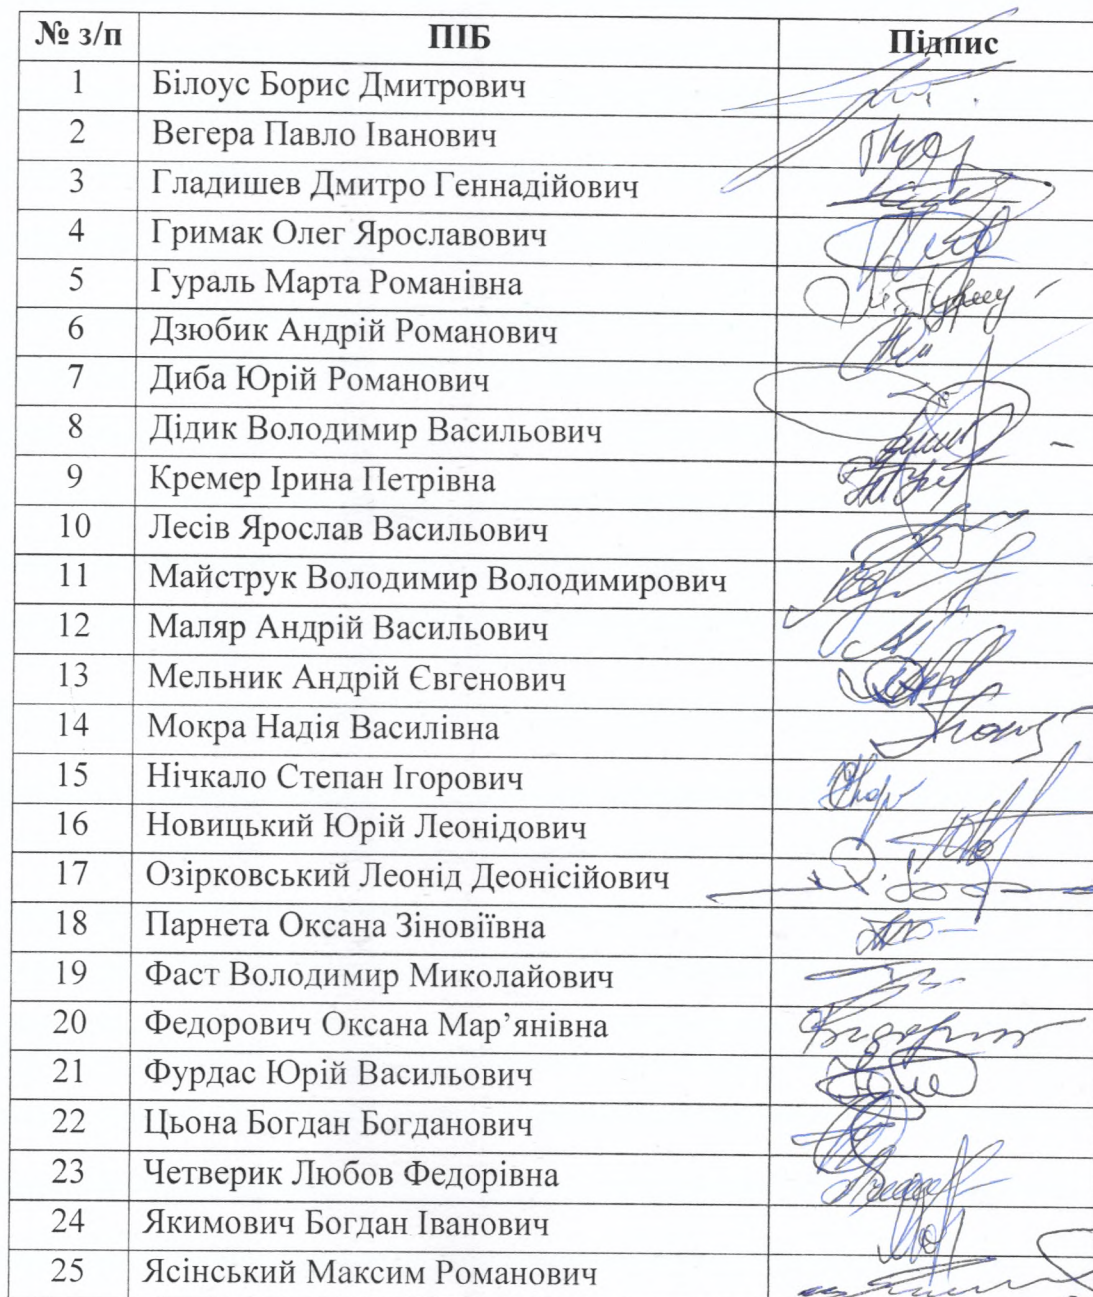 № з/п ПІБ Підпис
1 Білоус Борис Дмитрович
2 Вегера Павло Іванович
3 Гладишев Дмитро Геннадійович
4 Гримак Олег Ярославович
5 Гураль Марта Романівна
6 Дзюбик Андрій Романович
7 Диба Юрій Романович
8 Дідик Володимир Васильович
9 Кремер Ірина Петрівна
10 Лесів Ярослав Васильович
11 Майструк Володимир Володимирович
12 Маляр Андрій Васильович
13 Мельник Андрій Євгенович
14 Мокра Надія Василівна
15 Нічкало Степан Ігорович
16 Новицький Юрій Леонідович
17 Озірковський Леонід Деонісійович
18 Парнета Оксана Зіновіївна
19 Фаст Володимир Миколайович
20 Федорович Оксана Мар’янівна
21 Фурдас Юрій Васильович
22 Цьона Богдан Богданович
23 Четверик Любов Федорівна
24 Якимович Богдан Іванович
25 Ясінський Максим Романович